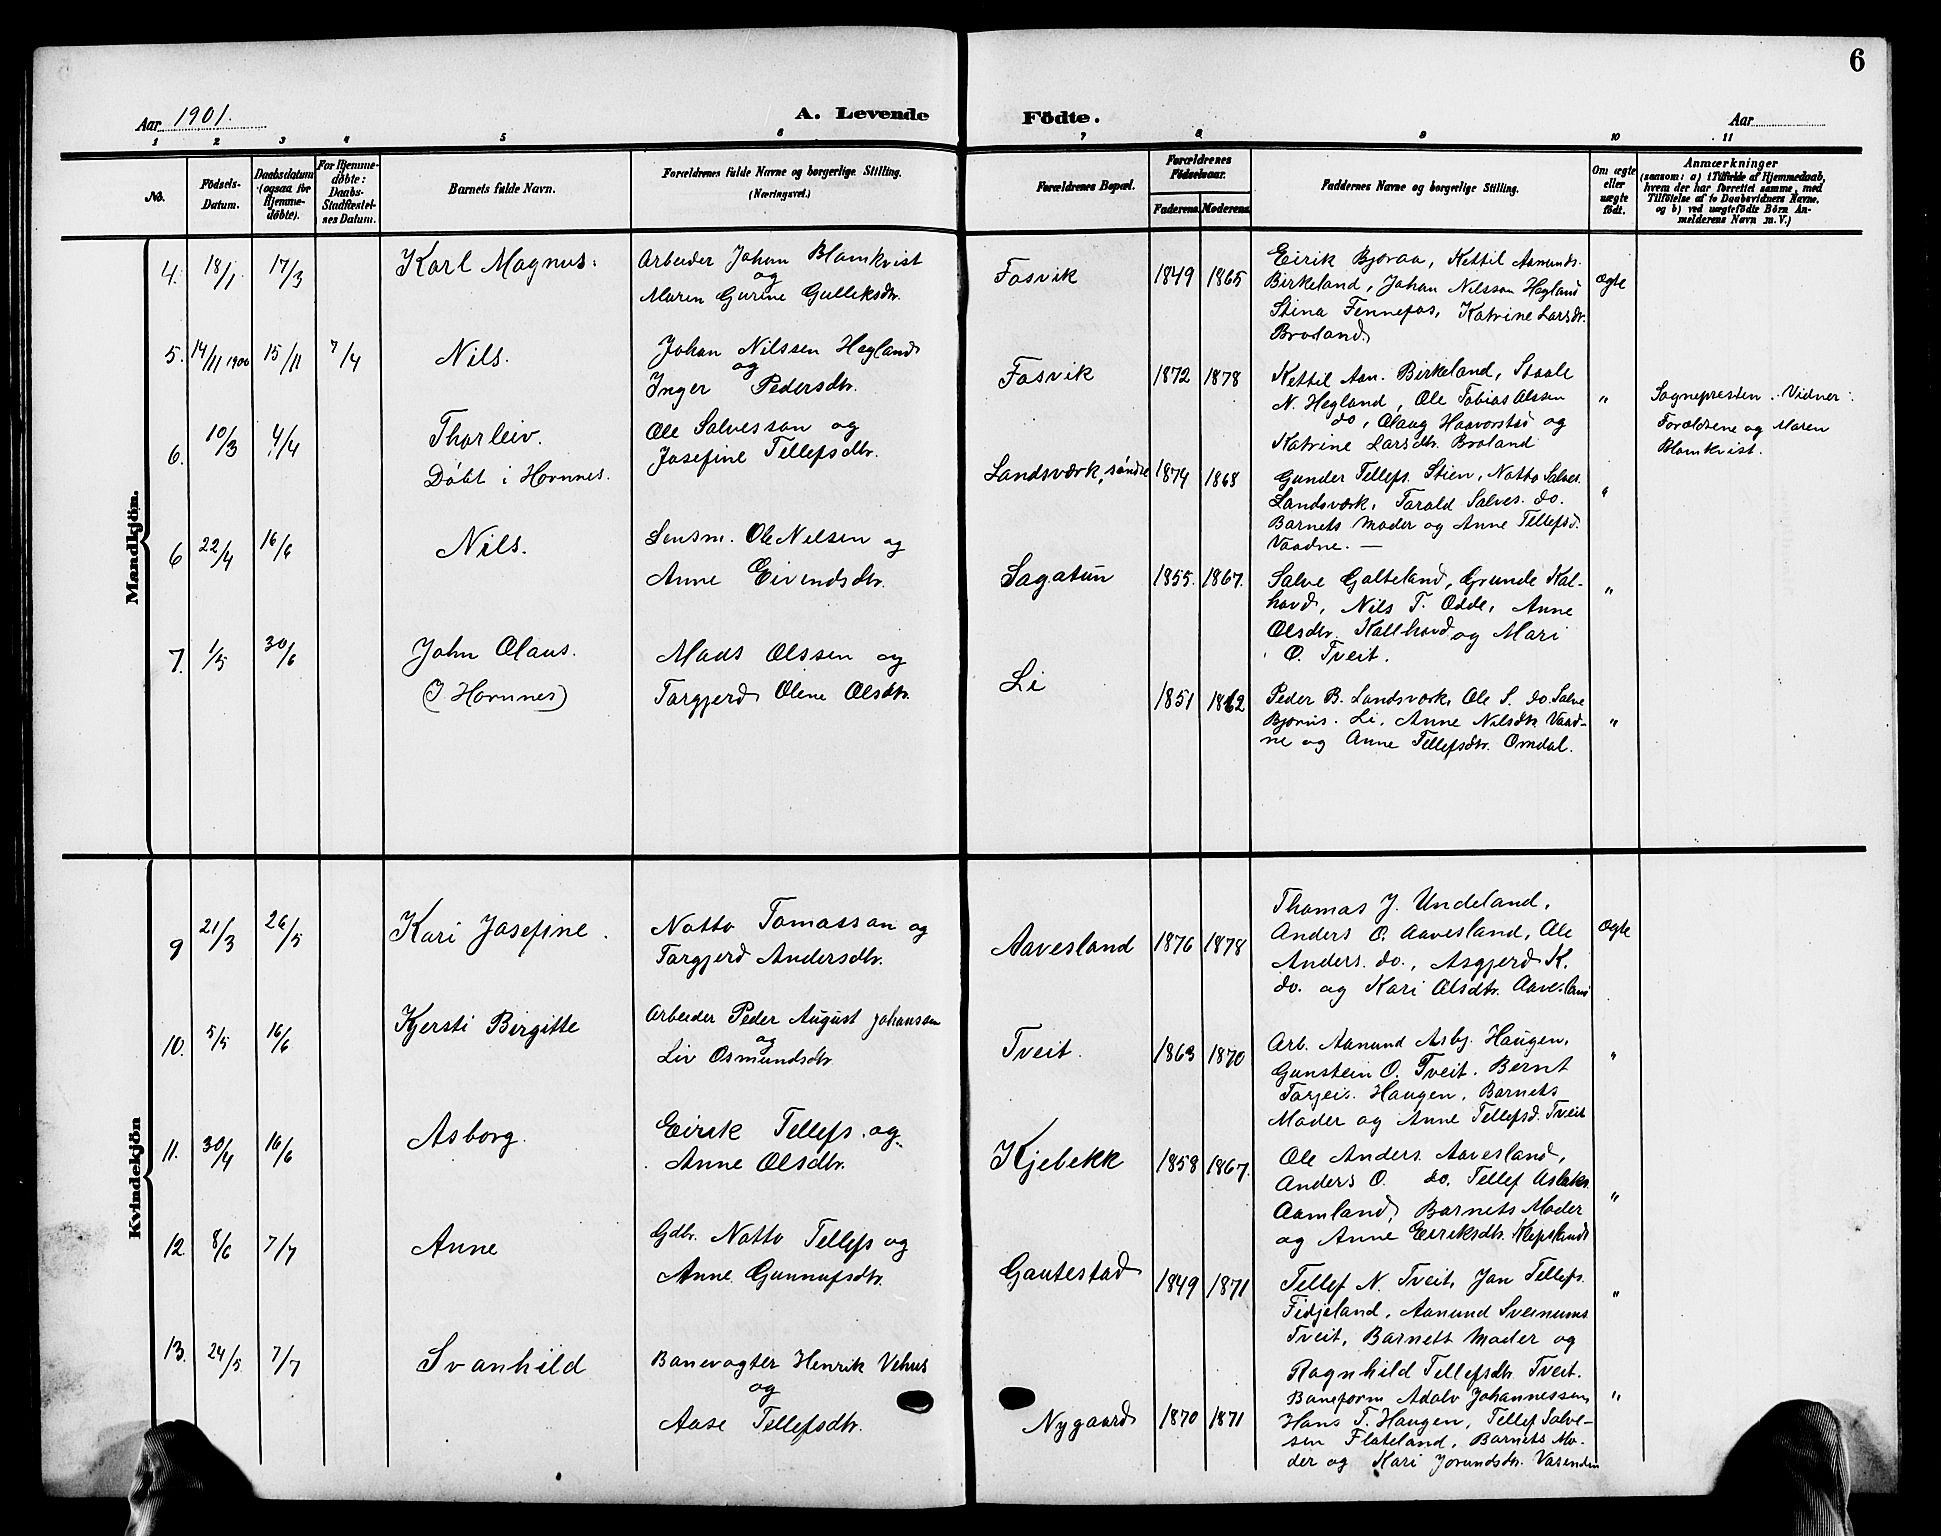 6
Aar 1901.
A. Levende
Födte.
Aar
1 2 3 4 5 6 7 8 9 10 11
No.
Födsels-
Datum.
Daabsdatum
(ogsaa for
Hjemme-
döbte).
For Hjemme-
döbte:
Daabs-
Stadfæstel-
ses Datum.
Barnets fulde Navn.
Forældrenes fulde Navne og borgerlige Stilling.
(Næringsvei.)
Forældrenes Bopæl.
Forældrenes
Födselsaar.
Faderens. Moderens.
Faddernes Navne og borgerlige Stilling.
Om ægte
eller
uægte
födt.
Anmærkninger
(saasom: a) i Tilfælde af Hjemmedaab,
hvem der har forrettet samme, med
Tilföielse af to Daabsvidners Navne,
og b) ved uægtefödte Börn An-
melderens Navn m. V.)
Mandkjön.
4. 18/1 17/3
Karl Magnus.
Arbeider Johan Blomkvist
og
Maren Gurine Gulleksdtr.
Fosvik
1849 1865
Eirik Bjoraa, Kettil Asmunds.
Birkeland, Johan Nilsson Hegland
Stina Fennefos, Katrine Larsdtr.
Broland.
Ægte
5. 14/11 1900 15/11 7/4
Nils.
Johan Nilssen Hegland
og
Inger Pedersdtr.
Fosvik
1872 1878
Kettil Aan. Birkeland, Staale
N. Hegland, Ole Tobias Olssen
do, Olaug Haavorstad og
Katrine Larsdtr. Broland
"
Sognepresten. Vidner:
Forældrene og Maren
Blomkvist.
6. 10/3 4/4
Thorleiv.
Döbt i Hornnes.
Ole Salvesson og
Josefine Tellefsdtr.
Landsværk, söndre
1874 1868
Gunder Tellefs. Stien, Notto Salves.
Landsværk, Torald Salves. do.
Barnets Moder og Anne Tellefsd.
Vaadne. —
"
6 22/4 16/6
Nils.
Lensm. Ole Nilsen og
Anne Eivendsdtr.
Sagatun
1855. 1867.
Salve Galteland, Grunde Kal-
havd, Nils T. Odde, Anne
Olsdtr. Kallhovd og Mari
O. Tveit.
"
7. 1/5 30/6
John Olaus.
(I Hornnes)
Mads Olssen og
Torgjerd Olene Olsdtr.
Li
1851 1862
Peder B. Landsværk, Ole S. do. Salve
Bjorns. Li, Anne Nilsdtr. Vaad-
ne og Anne Tellefsdtr. Omdal.
"
Kvindekjön
9 21/3 26/5
Kari Josefine.
Notto Tomasson og
Torgjerd Andersdtr.
Aavesland
1876 1878
Thomas J. Undeland,
Anders O. Aavesland, Ole
Anders. do., Asgjerd K.
do. og Kari Olsdtr. Aavesland
Ægte
10. 5/5 16/6
Kjersti Birgitte
Arbeider Peder August Johanssen
og
Liv Osmundsdtr.
Tveit.
1863 1870
Arb. Aanund Asbj. Haugen,
Gunstein O. Tveit. Bernt
Torjeis. Haugen, Barnets
Moder og Anne Tellefsd. Tveit
"
11. 30/4 16/6
Asborg.
Eirik Tellefs. og
Anne Olsdtr.
Kjebekk
1858 1867.
Ole Anders. Aavesland,
Anders O. do. Tellef Aslaks.
Aamland, Barnets Moder
og Anne Eiriksdtr. Klepsland
"
12. 8/6 7/7
Anne
Gdbr. Notto Tellefs og
Anne Gunnufsdtr.
Gautestad
1849 1871
Tellef N. Tveit, Jon Tellefs.
Fidjeland, Aanund Sveinums
Tveit, Barnets Moder og
Ragnhild Tellefsdtr. Tveit.
"
13. 24/5 7/7
Svanhild
Banevogter Henrik Vehus
og
Aase Tellefsdtr.
Nygaard
1870 1871
Baneform Adolv Johannessen,
Hans T. Haugen, Tellef Salve-
sen Flateland, Barnets Mo-
der og Kari Jorundsdtr. Vasenden
"